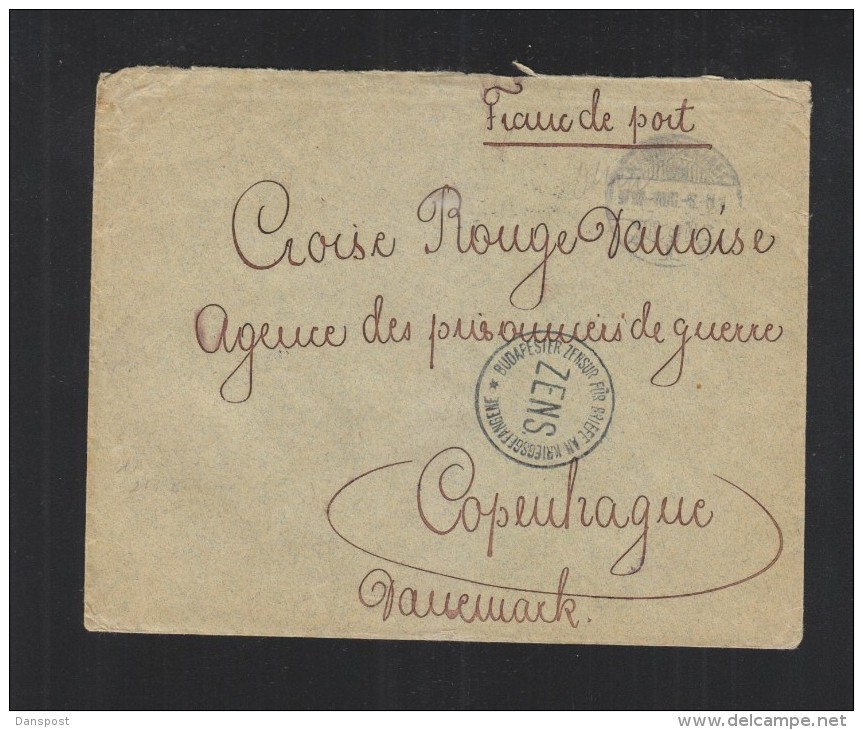 Franc de port
Croise Rouge Danoise
Agence des prisonniers de guerre
★ BUDAPESTER ZENSUR FÜR BRIEFE AN KRIEGSGEFANGENE
ZENS.
Copenhague
Danemark.
Danspost
delcampe.net